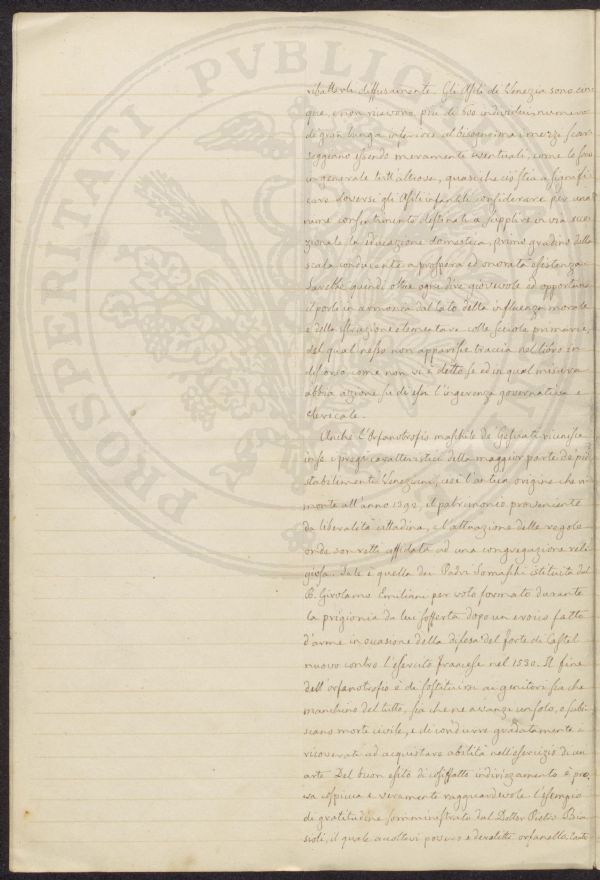 ribatterli diffusamente. Gli Asili di Venezia sono cin
que, e non ricevono più di 600 individui, numero
di gran lunga inferiore al bisogno; ma i mezzi scar
seggiano essendo meramente eventuali, come lo sono
in generale tutt'altrove, quasiché ciò stia a signifi
care doversi gli Asili infantili considerare per una
mera destinata a supplire in via ecce
zionale la educazione domestica, primo gradino della
scala conducente a prospera ed onorata esistenza.
Sarebbe quindi oltre ogni dire giovevole ed opportuno
il porli in armonia dal lato della influenza morale
e della istruzione elementare colle scuole primarie,
del qual nesso non apparisce traccia nel libro in
discorso, come non vi è detto se ed in qual misura
abbia azione su di essi l'ingerenza governativa e
clericale.
Anche l'Orfanotrofio maschile de' Gesuati riunisce
in se i pregi caratteristici della maggior parte de' pii
stabilimenti Veneziani, cioè l'antica origine che ri
monta all'anno 1392, il patrimonio proveniente
da liberalità cittadina, e l'attuazione delle regole
onde son retti affidata ad una congregazione reli
giosa. Tale è quella dei Padri Somaschi istituita dal
B. Girolamo Emiliani per voto formato durante
la prigionia da lui sofferta dopo un eroico fatto
d'arme in occasione della difesa del forte di Castel
nuovo contro l'esercito francese nel 1530. Il fine
dell'orfanotrofio è di sostituirsi ai genitori sia che
manchino del tutto, sia che ne avanzi un solo, o subi
scano morte civile, e di condurre gradatamente i
ricoverati ad acquistare abilità nell'esercizio di un
arte. Del buon esito di cosiffatto indirizzamento è pro
va cospicua e veramente ragguardevole l'esempio
di gratitudine somministrato dal Dottor Pietro Bia
sioli, il quale accoltovi povero e derelitto orfanello